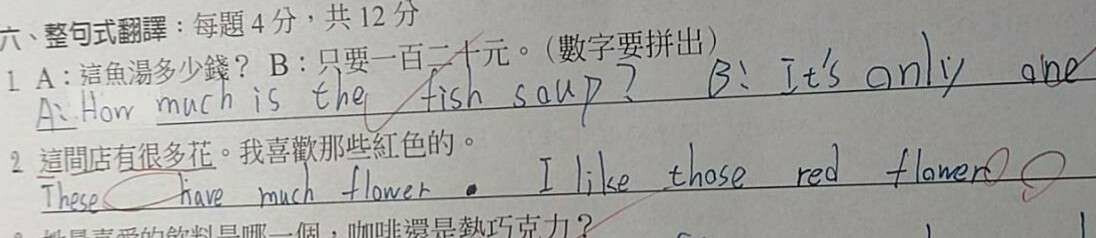 六、整句式翻譯：每題4分，共12分
1 A：這魚湯多少錢？ B：只要一百二十元。（數字要拼出）
A: How much is the fish soup? B: It's only one
2 這間店有很多花。我喜歡那些紅色的。
These have much flower. I like those red flower
她最喜愛的飲料是哪一個，咖啡還是熱巧克力？